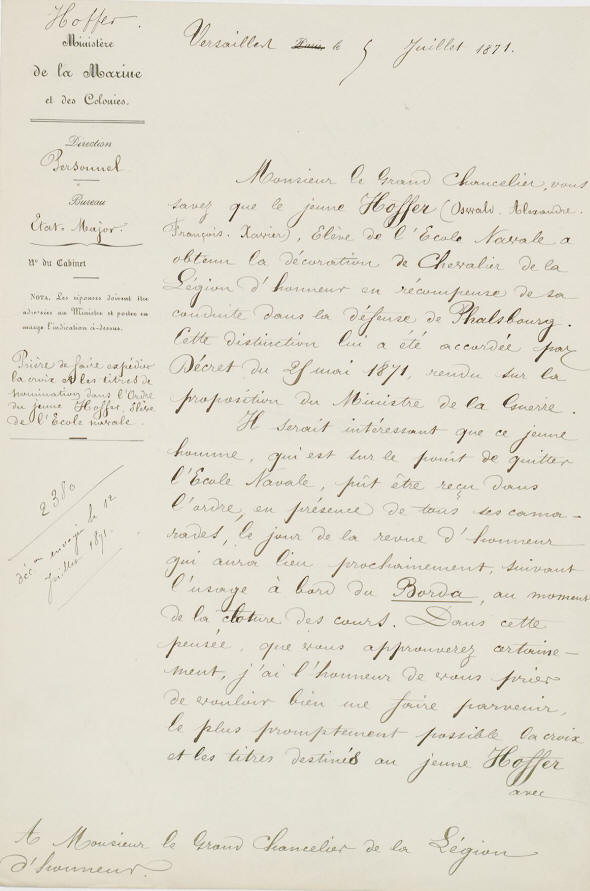 Hoffer.
Ministère
de la Marine
et des Colonies.
Direction
Personnel
Bureau
Etat-Major.
N° du Cabinet
NOTA. Les réponses doivent être
adressées au Ministre et porter en
marge l'indication ci-dessus.
Prière de faire expédier
la croix et les titres de
nomination dans l'Ordre
du jeune Hoffer, Elève
de l'Ecole navale.
2380
déc^on envoyée le 12
Juillet 1871.
Versailles Paris le 5 Juillet 1871.
Monsieur le Grand Chancelier, vous
savez que le jeune Hoffer (Oswald. Alexandre.
François. Xavier), Elève de l'Ecole Navale a
obtenu la décoration de Chevalier de la
Légion d'honneur en récompense de sa
conduite dans la défense de Phalsbourg.
Cette distinction lui a été accordée par
Décret du 25 mai 1871, rendu sur la
proposition du Ministre de la Guerre.
Il serait intéressant que ce jeune
homme, qui est sur le point de quitter
l'Ecole Navale, pût être reçu dans
l'ordre, en présence de tous ses cama-
rades, le jour de la revue d'honneur
qui aura lieu prochainement, suivant
l'usage à bord du Borda, au moment
de la cloture des cours. Dans cette
pensée, que vous approuverez certaine-
ment, j'ai l'honneur de vous prier
de vouloir bien me faire parvenir,
le plus promptement possible la croix
et les titres destinés au jeune Hoffer
avec
A Monsieur le Grand Chancelier de la Légion
d'honneur.